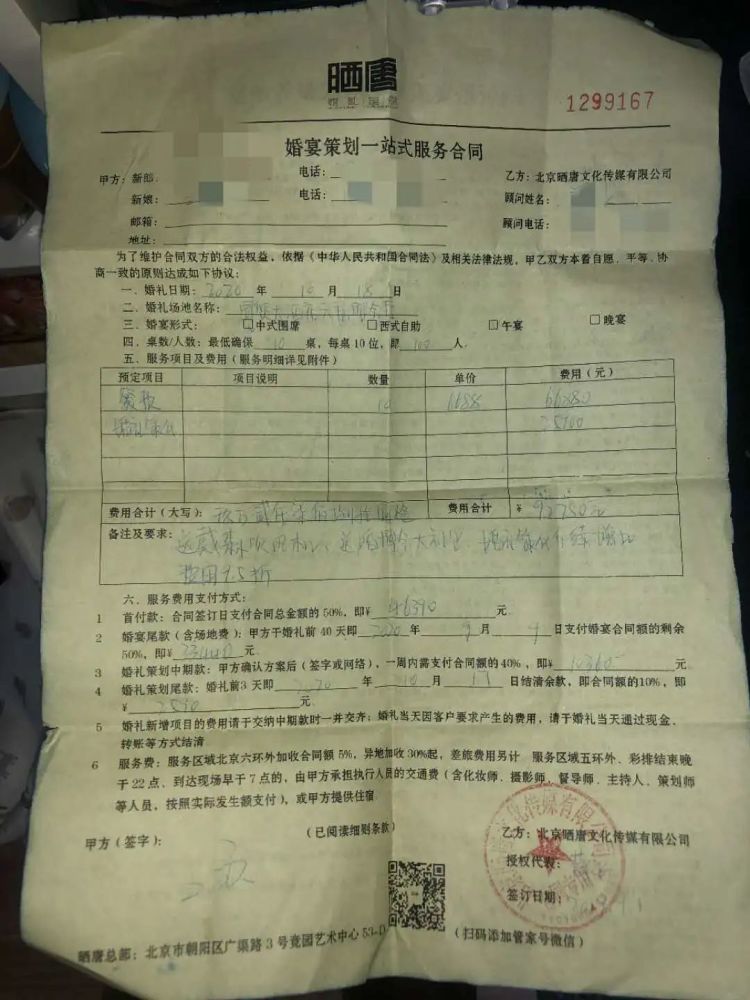 晒唐
1299167
婚宴策划一站式服务合同
甲方：新郎： 电话： 乙方：北京晒唐文化传媒有限公司
新娘： 电话： 顾问姓名：
邮箱： 顾问电话：
地址：
为了维护合同双方的合法权益，依据《中华人民共和国合同法》及相关法律法规，甲乙双方本着自愿、平等、协
商一致的原则达成如下协议：
一、婚礼日期：2020 年 10 月 18 日
二、婚礼场地名称：
三、婚宴形式： □中式围席 □西式自助 □午宴 □晚宴
四、桌数/人数：最低确保 10 桌，每桌 10 位，即 100 人.
五、服务项目及费用（服务明细详见附件）
预定项目 项目说明 数量 单价 费用（元）
餐标 1688 66880
婚礼策划 25900
费用合计（大写）： 费用合计 ¥ 92780元
备注及要求：
费用9.5折
六、服务费用支付方式：
1 首付款：合同签订日支付合同总金额的 50%，即¥ 46390 元
2 婚宴尾款（含场地费）：甲方于婚礼前 40 天即 2020 年 9 月 9 日支付婚宴合同额的剩余
50%，即¥ 33440 元
3 婚礼策划中期款：甲方确认方案后（签字或网络），一周内需支付合同额的40%，即¥ 10360 元
4 婚礼策划尾款：婚礼前3 天即 2020 年 10 月 日结清余款，即合同额的10%，即
¥ 2590 元
5 婚礼新增项目的费用请于交纳中期款时一并交齐；婚礼当天因客户要求产生的费用，请于婚礼当天通过现金、
转账等方式结清
6 服务费：服务区域北京六环外加收合同额 5%，异地加收 30%起，差旅费用另计 服务区域五环外、彩排结束晚
于 22 点、到达现场早于 7 点的，由甲方承担执行人员的交通费（含化妆师、摄影师、督导师、主持人、策划师
等人员，按照实际发生额支付），或甲方提供住宿
（已阅读细则条款）
甲方（签字）： 乙方：北京晒唐文化传媒有限公司
授权代表：
签订日期：
晒唐总部：北京市朝阳区广渠路 3 号竞园艺术中心 53-D （扫码添加管家号微信）